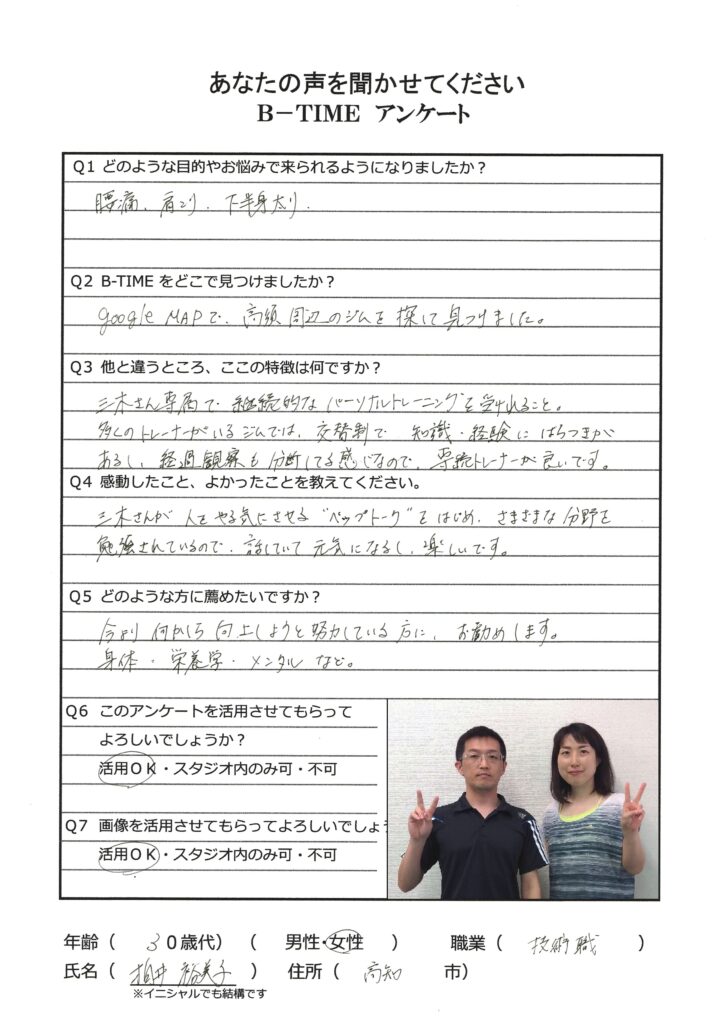 あなたの声を聞かせてください
B－TIME アンケート
Q1 どのような目的やお悩みで来られるようになりましたか？
腰痛、肩こり、下半身太り.
Q2 B-TIME をどこで見つけましたか？
google MAPで、高須周辺のジムを探して見つけました。
Q3 他と違うところ、ここの特徴は何ですか？
三木さん専属で継続的なパーソナルトレーニングを受けれること。
多くのトレーナーがいるジムでは、交替制で知識・経験にばらつきが
あるし、経過観察も分断してる感じなので、専続トレーナーが良いです。
Q4 感動したこと、よかったことを教えてください。
三木さんが人をやる気にさせる"ペップトーク"をはじめ、さまざまな分野を
勉強されているので、話していて元気になるし、楽しいです。
Q5 どのような方に薦めたいですか？
今より何かしら向上しようと努力している方に、お勧めします。
身体・栄養学・メンタルなど。
Q6 このアンケートを活用させてもらって
よろしいでしょうか？
活用ＯＫ・スタジオ内のみ可・不可
Q7 画像を活用させてもらってよろしいでしょ
活用ＯＫ・スタジオ内のみ可・不可
年齢（ 30歳代） （ 男性・女性 ） 職業（ 技術職 ）
氏名（ 裕美子 ） 住所（ 高知 市）
※イニシャルでも結構です